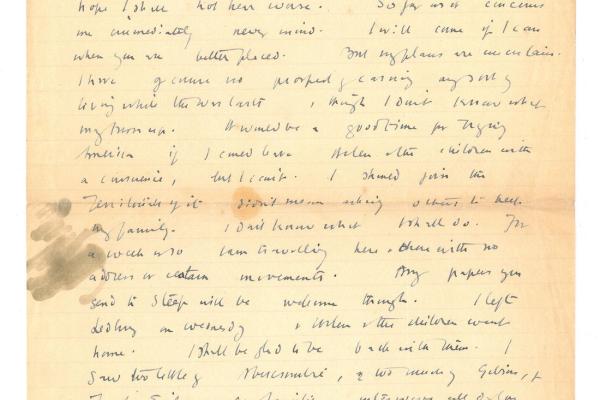 hope I shall not hear worse. So far as it concerns
me immediately never mind. I will come if I can
when you are better placed. But my plans are uncertain.
I have of course no prospect of earning any sort of
living while the war lasts, though I don't know what
may turn up. It would be a good time for trying
America if I could leave Helen & the children with
a conscience, but I can't. I should join the
Territorials if it didn't mean asking others to keep
my family. I don't know what I shall do. For
a week or so I am travelling here & there with no
address or certain movements. Any papers you
send to Steep will be welcome though. I left
Ledbury on Wednesday & Helen & the children went
home. I shall be glad to be back with them. I
saw too little of Abercrombie, & too much of Gibson, &